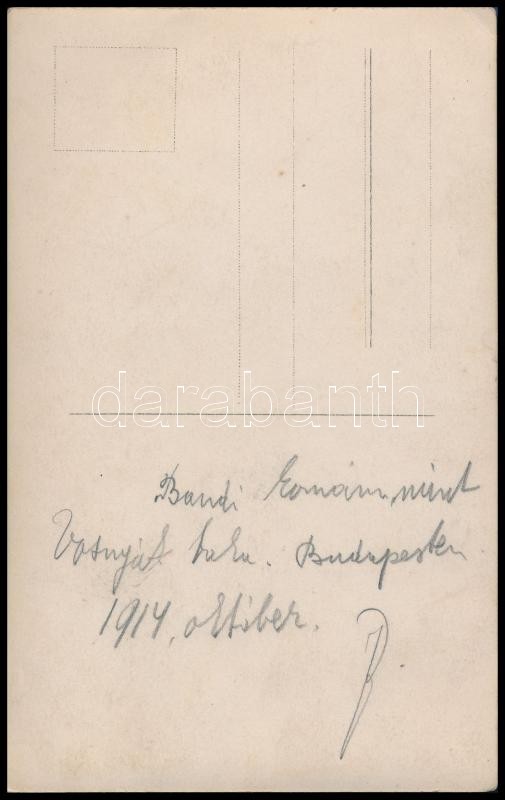 darabanth
Bandi komám, mint
Bosnyák baka. Budapesten
1914. október.